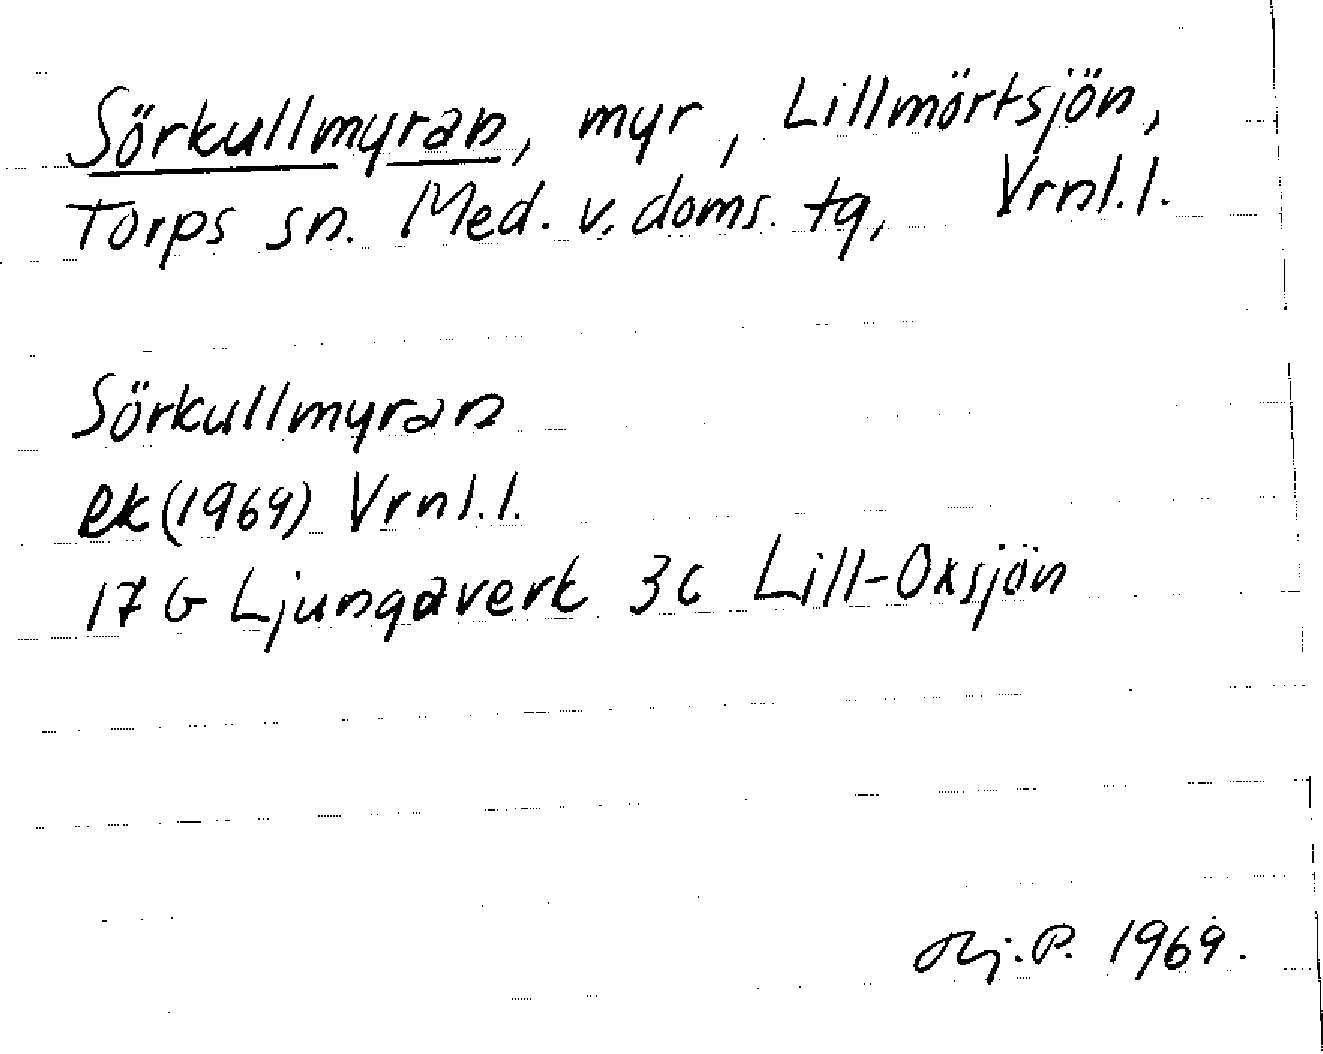 Sörkullmyran, myr, Lillmörtsjön,
Torps sn. Med. v. doms. tg, Vrnl.l.
Sörkullmyran
ek (1969) Vrnl.l.
17 G Ljungaverk 3c Lill-Oxsjön
Hj.P. 1969.